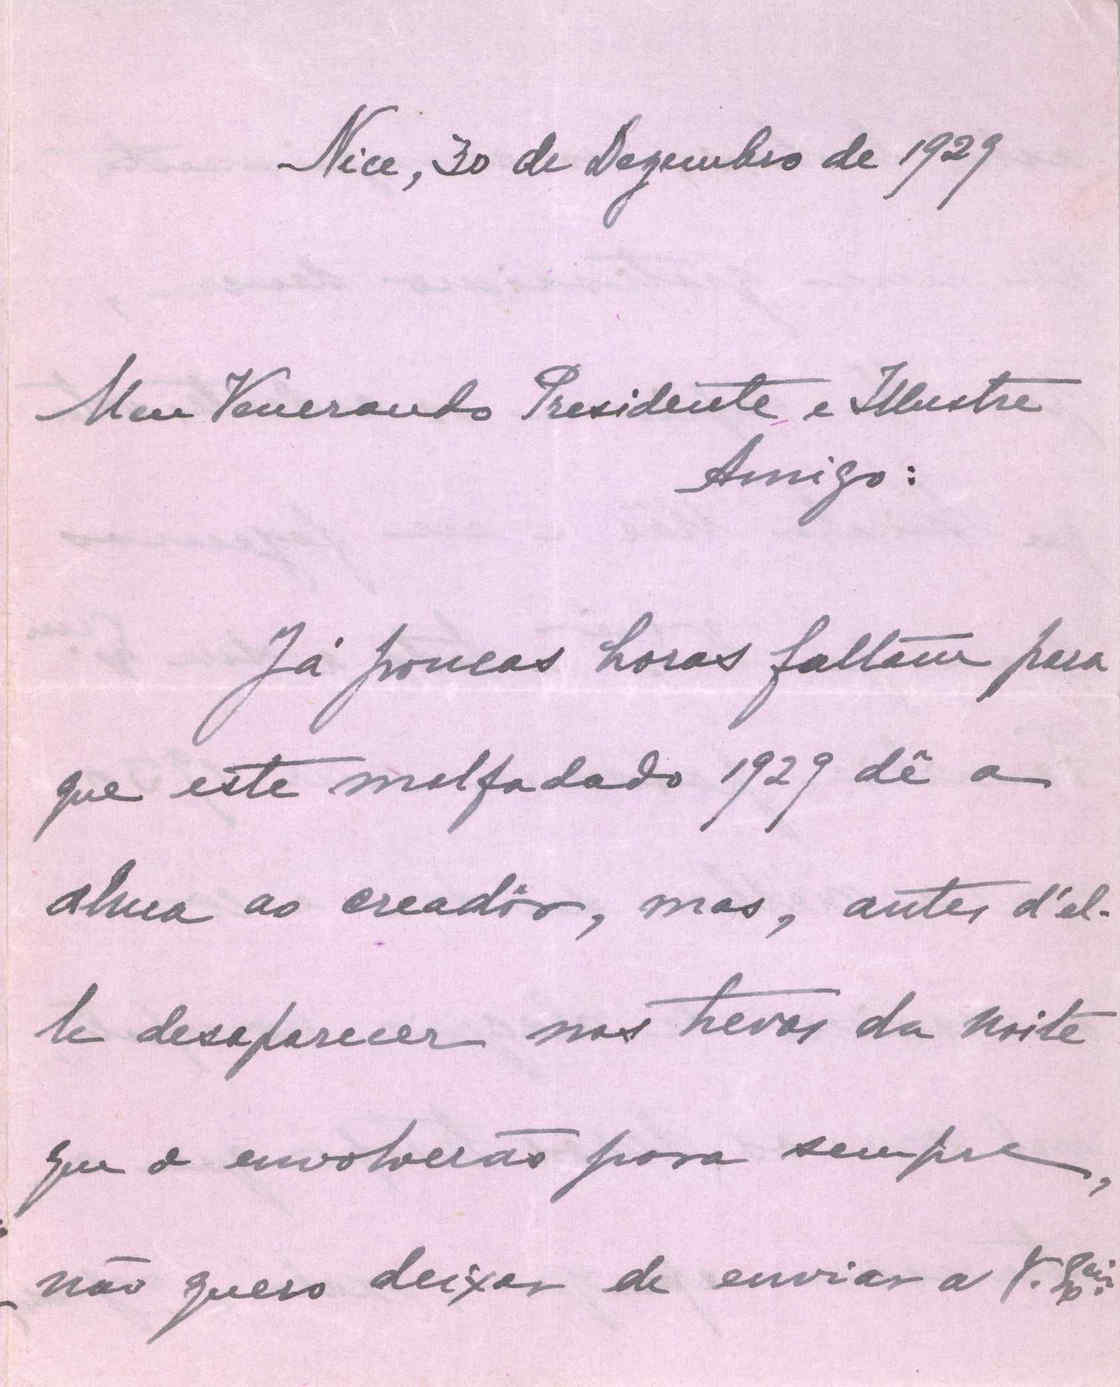 Nice, 30 de Dezembro de 1929
Meu Venerando Presidente e Illustre
Amigo:
Já poucas horas faltam para
que este malfadado 1929 dê a
alma ao creadôr, mas, antes d'el-
le desaparecer nas trevas da noite
que o envolverão para sempre,
não quero deixar de enviar a V. Exciª